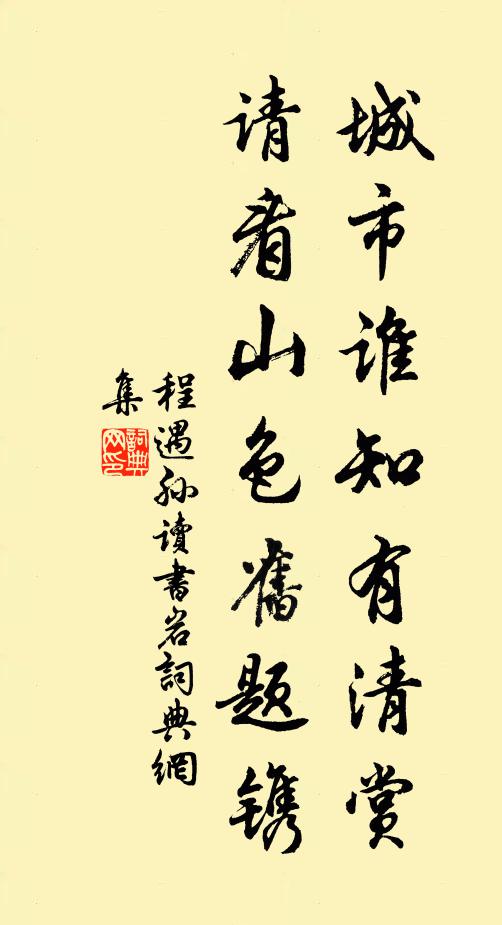 城市谁知有清赏
请看山色旧题镌
程遇孙读书岩词典网
集
詞典网印